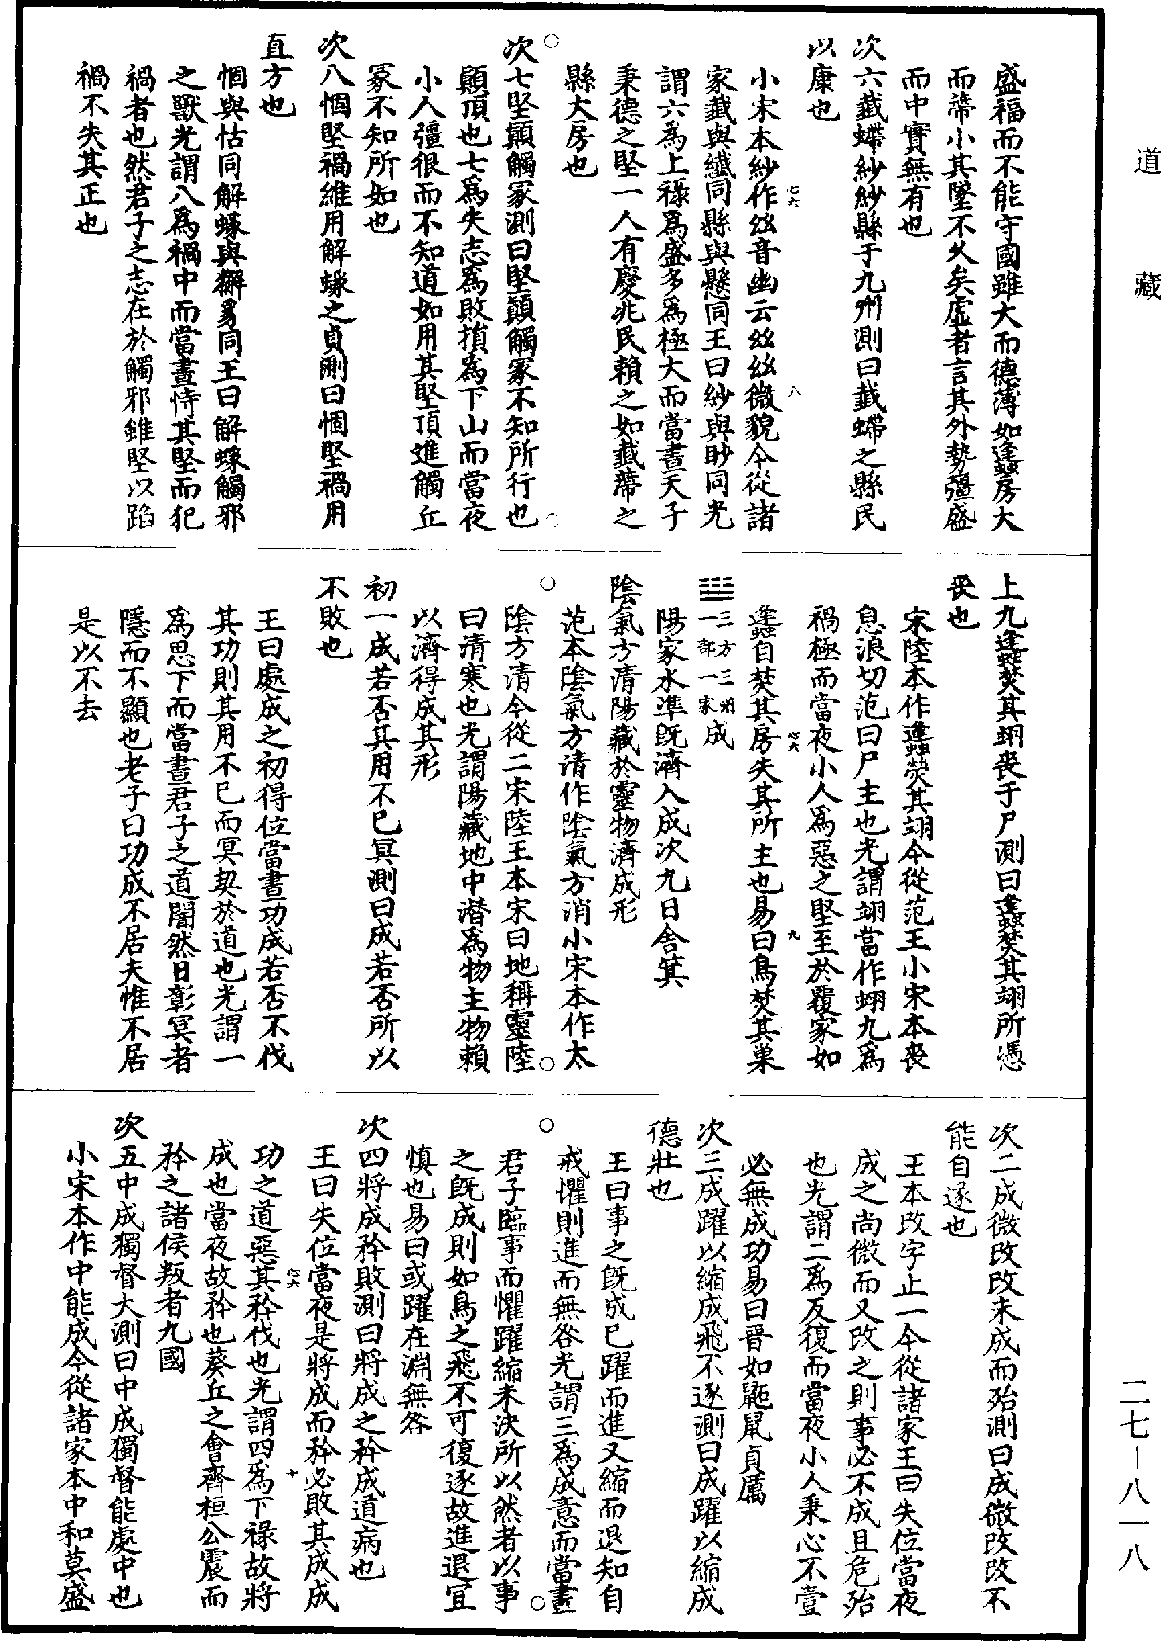 道藏
盛福而不能守國雖大而德薄如蠭房大
而蔕小其墜不久矣虛者言其外勢彊盛
而中實無有也
次六䤋蠕紗紗縣于九州測曰䤋蠕之縣民
以康也
小宋本紗作𢆶音幽云𢆶𢆶微貌今從諸
家䤋與纖同縣與懸同王曰紗與眇同光
謂六為上祿為盛多為極大而當晝天子
秉德之堅一人有慶兆民賴之如䤋蔕之
縣大房也
次七堅顛觸冢測曰堅顛觸冢不知所行也
顛頂也七為失志為敗損為下山而當夜
小人彊很而不知道如用其堅頂進觸丘
冢不知所如也
次八㤥堅禍維用解蟓之貞測曰㤥堅禍用
直方也
㤥與怙同解蟓與獬豸同王曰解蟓觸邪
之獸光謂八為禍中而當晝恃其堅而犯
禍者也然君子之志在於觸邪雖堅以蹈
禍不失其正也
上九蠭焚其翊喪于尸測曰蠭焚其翊所憑
喪也
宋陸本作蠭熒其翊今從范王小宋本喪
息浪切范曰尸主也光謂翊當作蛡九為
禍極而當夜小人為惡之堅至於覆家如
蠭自焚其房失其所主也易曰鳥焚其巢
三方三州一部一家成
陽家水準既濟入成次九日舍箕
陰氣方清陽藏於靈物濟成形
范本陰氣方清作陰氣方消小宋本作太
陰方清今從二宋陸王本宋曰地稱靈陸
曰清寒也光謂陽藏地中潛為物主物賴
以濟得成其形
初一成若否其用不已冥測曰成若否所以
不敗也
王曰處成之初得位當晝功成若否不伐
其功則其用不已而冥契於道也光謂一
為思下而當晝君子之道闇然日彰冥者
隱而不顯也老子曰功成不居夫惟不居
是以不去
次二成微改改未成而殆測曰成微改改不
能自遂也
王本改字止一今從諸家王曰失位當夜
成之尚微而又改之則事必不成且危殆
也光謂二為反復而當夜小人秉心不壹
必無成功易曰晉如鼫鼠貞厲
次三成躍以縮成飛不逐測曰成躍以縮成
德壯也
王曰事之既成已躍而進又縮而退知自
戒懼則進而無咎光謂三為成意而當晝
君子臨事而懼躍縮未決所以然者以事
之既成則如鳥之飛不可復逐故進退宜
慎也易曰或躍在淵無咎
次四將成矜敗測曰將成之矜成道病也
王曰失位當夜是將成而矜必敗其成成
功之道惡其矜伐也光謂四為下祿故將
成也當夜故矜也葵丘之會齊桓公震而
矜之諸侯叛者九國
次五中成獨督大測曰中成獨督能處中也
小宋本作中能成今從諸家本中和莫盛
二七—八一八